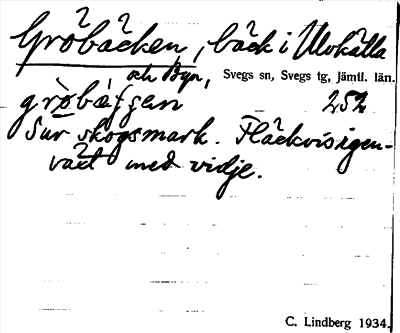 Gröbäcken, bäck i Ulvkälla
och Byn, Svegs sn, Svegs tg, Jämtl. län.
252
Sur skogsmark. Fläckvis igen-
växt med vidje.
C. Lindberg 1934.